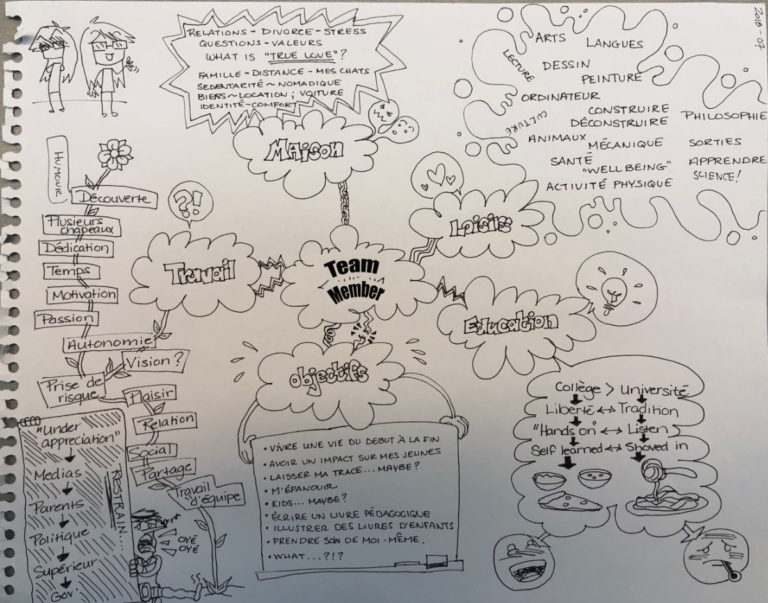 2018-07
RELATIONS - DIVORCE - STRESS
QUESTIONS - VALEURS
WHAT IS "TRUE LOVE"?
FAMILLE - DISTANCE - MES CHATS
SEDENTARITÉ ~ NOMADIQUE
BIENS ~ LOCATION ; VOITURE
IDENTITÉ - COMFORT
MAISON
ARTS
LANGUES
LECTURE
DESSIN
PEINTURE
ORDINATEUR
CULTURE
CONSTRUIRE
DÉCONSTRUIRE
PHILOSOPHIE
ANIMAUX
MÉCANIQUE
SORTIES
SANTÉ
"WELL BEING"
APPRENDRE
SCIENCE!
ACTIVITÉ PHYSIQUE
Loisirs
?!
Travail
Team
Member
Education
Objectifs
HUMOUR
Découverte
Plusieurs
chapeaux
Dédication
Temps
Motivation
Passion
Autonomie
Vision?
Prise de
risque
Plaisir
Relation
Social
Partage
Travail
d'équipe
"Under
appreciation"
Medias
Parents
Politique
Supérieur
Gov.
RESTRAIN...
OYÉ
OYÉ
• VIVRE UNE VIE DU DEBUT À LA FIN
• AVOIR UN IMPACT SUR MES JEUNES
• LAISSER MA TRACE... MAYBE?
• M'ÉPANOUIR
• KIDS... MAYBE?
• ÉCRIRE UN LIVRE PÉDAGOGIQUE
• ILLUSTRER DES LIVRES D'ENFANTS
• PRENDRE SOIN DE MOI-MÊME.
• WHAT...?!?
Collège > Université
Liberté ↔ Tradition
"Hands on" ↔ Listen
Self learned ↔ Shoved in